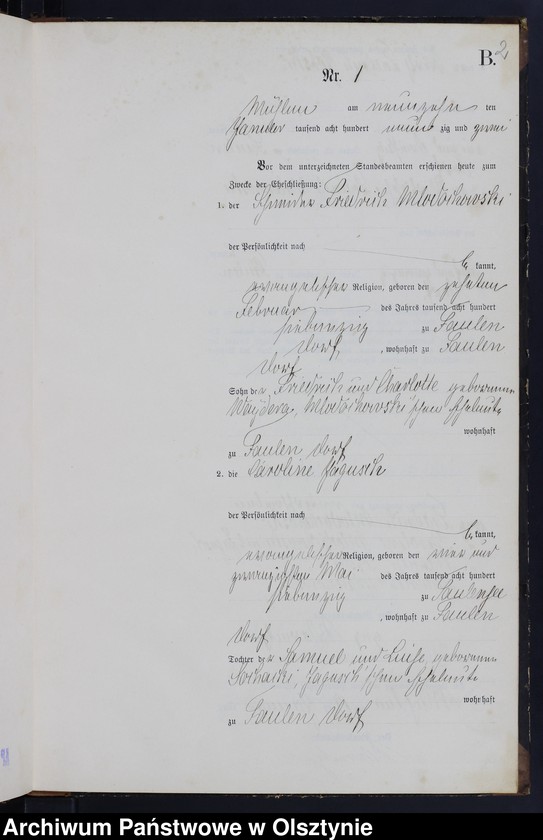 B. 2
Nr. 1
Mühlen am neunzehn ten
Januar tausend acht hundert neun zig und zwei
Vor dem unterzeichneten Standesbeamten erschienen heute zum
Zwecke der Eheschließung:
1. der Schneider Friedrich Mlodochowski
der Persönlichkeit nach
be kannt,
evangelischer Religion, geboren den zehnten
Februar des Jahres tausend acht hundert
siebenzig zu Faulen
Dorf, wohnhaft zu Faulen
Dorf
Sohn der Friedrich und Charlotte geborenen
Mlodochowski'schen Eheleute
wohnhaft
zu Faulen Dorf
2. die Caroline Jagusch
der Persönlichkeit nach
be kannt,
evangelischer Religion, geboren den vier und
zwanzigsten Mai des Jahres tausend acht hundert
siebenzig zu
, wohnhaft zu Faulen
Dorf
Tochter der Samuel und Luise geborenen
Jagusch'schen Eheleute
wohnhaft
zu Faulen Dorf
Archiwum Państwowe w Olsztynie